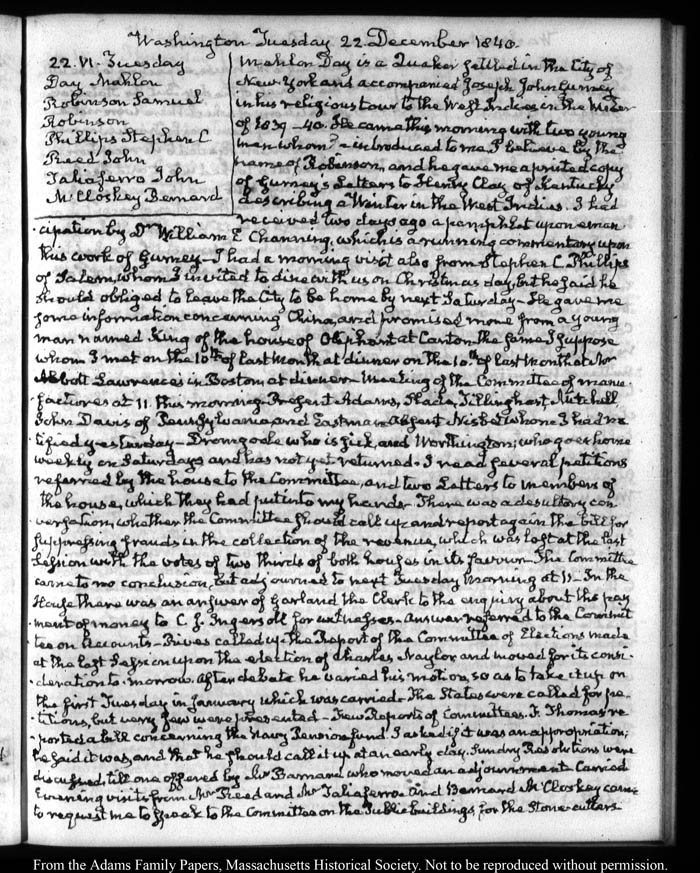 Washington Tuesday 22. December 1840.
22. VI. Tuesday
Day Mahlon
Robinson Samuel
Robinson
Phillips Stephen C
Reed John
Taliaferro John
McCloskey Bernard
Mahlon Day is a Quaker settled in the City of
New York and accompanied Joseph John Gurney
in his religious tour to the West Indies in the Winter
of 1839-40. He came this morning with two young
men whom he introduced to me, I believe by the
name of Robinson, and he gave me a printed copy
of Gurney's Letters to Henry Clay of Kentucky
describing a Winter in the West Indies. I had
received two days ago a pamphlet upon eman
cipation by Dr William E Channing, which is a running commentary upon
this work of Gurney - I had a morning visit also from Stephen C. Phillips
of Salem, whom I invited to dine with us on Christmas day, but he said he
should obliged to leave the City to be home by next Saturday - He gave me
some information concerning China, and promised more from a young
man named King of the house of Oliphant at Canton the same I suppose
whom I met on the 10th of last Month at dinner on the 10th of last Month at Mr
Abbott Lawrence's in Boston at dinner - Meeting of the Committee of manu-
factures at 11. this morning - Present Adams, Slade, Tillinghast, Mitchell
John Davis of Pennsylvania and Eastman - Absent Nisbet whom I had no
tified yesterday - Dromgoole who is sick, and Worthington; who goes home
weekly on Saturdays and has not yet returned. I read several petitions
referred by the house to the Committee, and two Letters to members of
the house, which they had put into my hands. There was a desultory con
versation, whether the Committee should call up and report again the bill for
suppressing frauds in the collection of the revenue, which was lost at the last
Session with the votes of two thirds of both houses in its favour - The Committee
came to no conclusion, but adjourned to next Tuesday morning at 11 - In the
House there was an answer of Garland the Clerk to the enquiry about the pay
ment of money to C. J. Ingersoll for witnesses - Answer referred to the Commit
tee on Accounts - Rives called up the Report of the Committee of Elections made
at the last Session upon the election of Charles Naylor and moved for its consi-
deration to-morrow. After debate he varied his motion, so as to take it up on
the first Tuesday in January which was carried - The States were called for pe-
titions, but very few were presented - Few Reports of Committees. F. Thomas re
ported a bill concerning the Navy Pension fund. I asked if it was an appropriation;
he said it was, and that he should call it up at an early day. Sundry Resolutions were
discussed, till one offered by Mr Barnard who moved an adjournment Carried
Evening visits from Mr Reed and Mr Taliaferro. And Bernard McCloskey came
to request me to speak to the Committee on the Public buildings, for the Stone-cutters
From the Adams Family Papers, Massachusetts Historical Society. Not to be reproduced without permission.